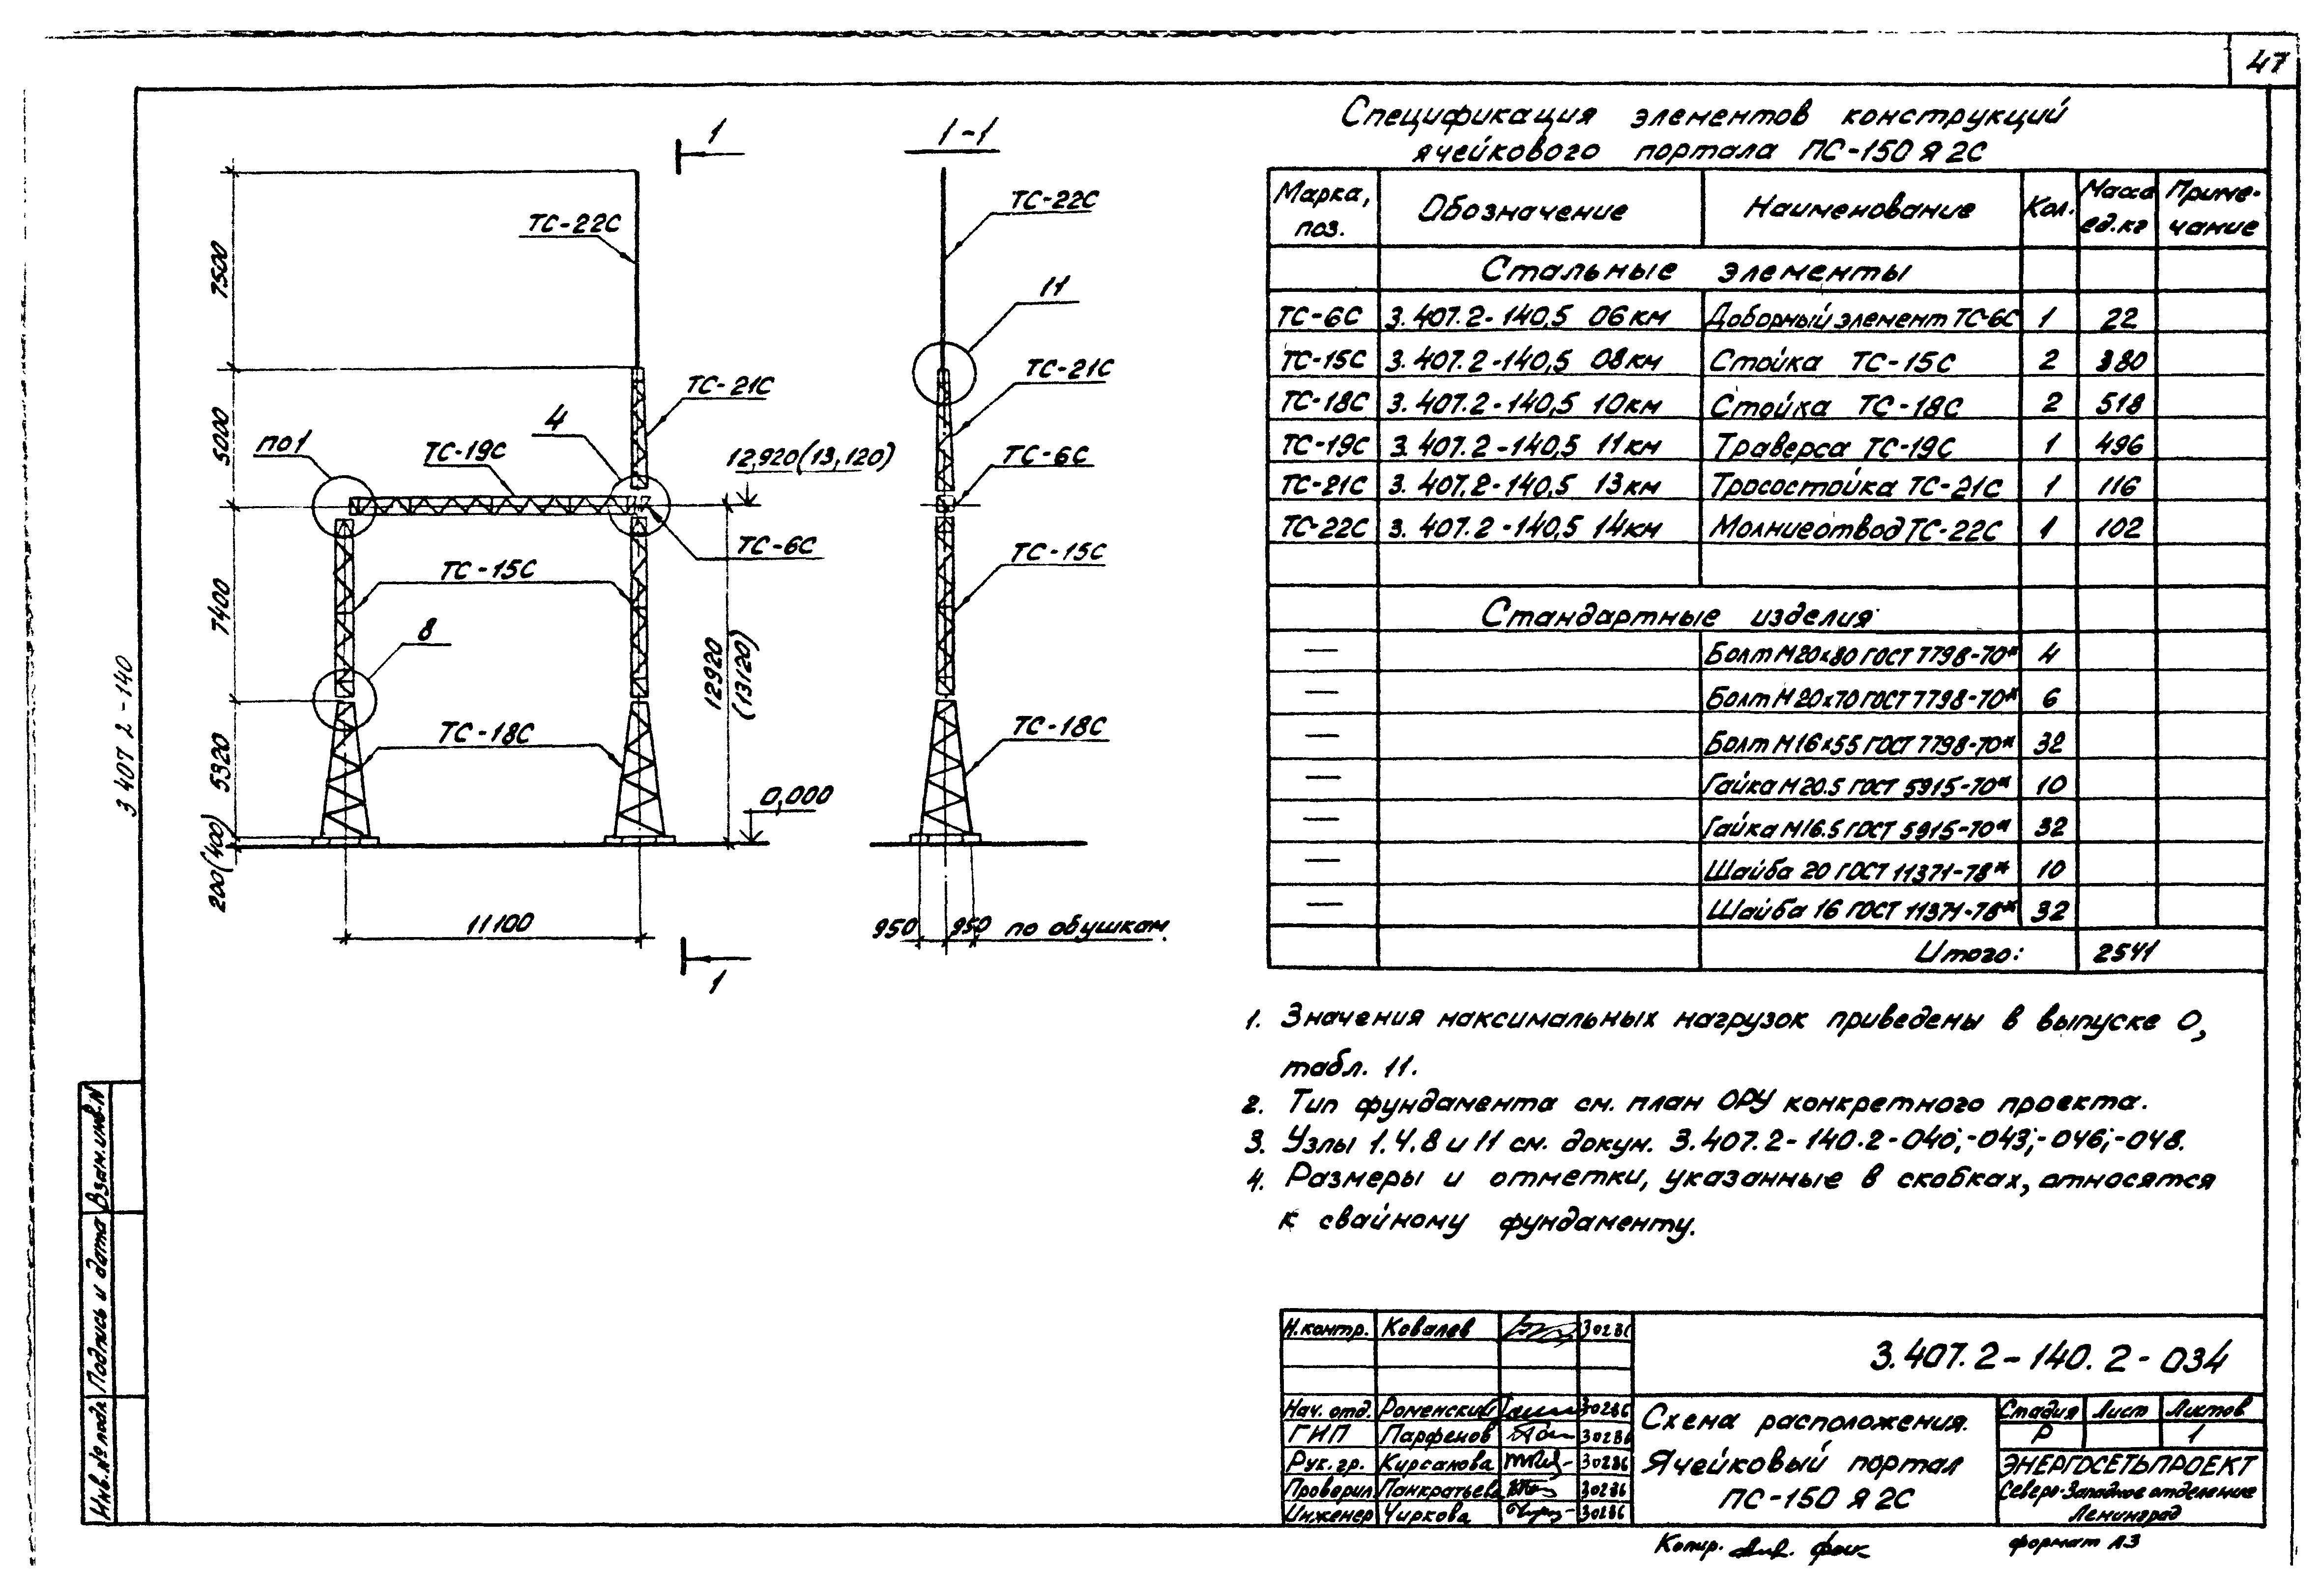 47
3 407 2 - 140
1
1-1
ТС-22С
ТС-22С
7500
11
ТС-21С
ТС-21С
4
5000
по1
ТС-19С
12,920(13,120)
ТС-6С
ТС-6С
ТС-15С
ТС-15С
7400
8
12920
(13120)
ТС-18С
ТС-18С
5320
0,000
200(400)
11100
950 950 по обушкам
1
Спецификация элементов конструкций
ячейкового портала ПС-150 Я 2С
Марка, поз. Обозначение Наименование Кол. Масса ед.кг Примечание
Стальные элементы
ТС-6С 3.407.2-140,5 06км Доборный элемент ТС-6С 1 22
ТС-15С 3.407.2-140,5 08км Стойка ТС-15С 2 380
ТС-18С 3.407.2-140,5 10км Стойка ТС-18С 2 518
ТС-19С 3.407.2-140,5 11км Траверса ТС-19С 1 496
ТС-21С 3.407.2-140,5 13км Тросостойка ТС-21С 1 116
ТС-22С 3.407.2-140,5 14км Молниеотвод ТС-22С 1 102
Стандартные изделия
— Болт М20х80 ГОСТ 7798-70* 4
— Болт М20х70 ГОСТ 7798-70* 6
— Болт М16х55 ГОСТ 7798-70* 32
— Гайка М20.5 ГОСТ 5915-70* 10
— Гайка М16.5 ГОСТ 5915-70* 32
— Шайба 20 ГОСТ 11371-78* 10
— Шайба 16 ГОСТ 11371-78* 32
Итого: 2541
1. Значения максимальных нагрузок приведены в выпуске 0,
табл. 11.
2. Тип фундамента см. план ОРУ конкретного проекта.
3. Узлы 1.4.8 и 11 см. докум. 3.407.2-140.2-040;-043;-046;-048.
4. Размеры и отметки, указанные в скобках, относятся
к свайному фундаменту.
Взам.инв.N
Подпись и дата
Инв.№ подл
Н.контр. Ковалев 30286
3.407.2-140.2-034
Нач. отд. Роменский 30286
ГИП Парфенов 30286
Рук. гр. Кирсанова 30286
Проверил Панкратьева 30286
Инженер Чиркова 30286
Схема расположения.
Ячейковый портал
ПС-150 Я 2С
Стадия Лист Листов
Р 1
ЭНЕРГОСЕТЬПРОЕКТ
Северо-Западное отделение
Ленинград
Копир.
формат А3